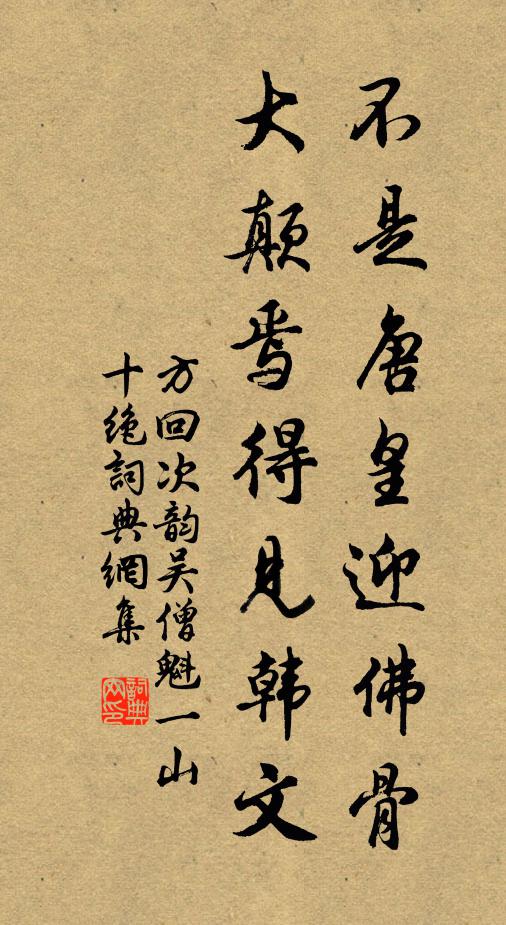 不是唐皇迎佛骨
大颠焉得見韩文
方回次韵吴僧魁一山
十绝詞典網集
詞典网印